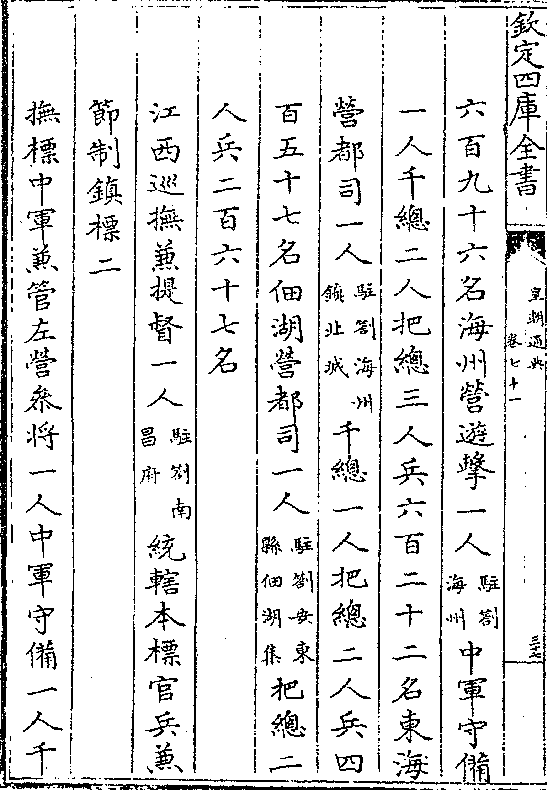 欽定四庫全書
皇朝通典
卷七十一
三十七
六百九十六名海州營遊擊一人駐劄海州中軍守備
一人千總二人把總三人兵六百二十二名東海
營都司一人駐劄海州鎮北城千總一人把總二人兵四
百五十七名佃湖營都司一人駐劄安東縣佃湖集把總二
人兵二百六十七名
江西巡撫兼提督一人駐劄南昌府統轄本標官兵兼
節制鎮標二
撫標中軍兼管左營叅將一人中軍守備一人千